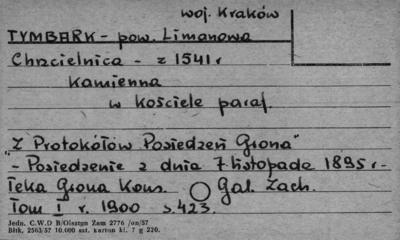 woj. Kraków
TYMBARK - pow. Limanowa
Chrzcielnica - z 1541 r
kamienna
w kościele paraf.
"Z Protokółów Posiedzeń Grona"
- Posiedzenie z dnia 7 listopada 1895 r -
Teka Grona Kons. Gal. Zach.
Tom I r. 1900 s. 423.
Jedn. C.W.D B/Olsztyn Zam 2776 /on/57
Blk. 2563/57 10.000 szt. karton kl. 7 g 220.